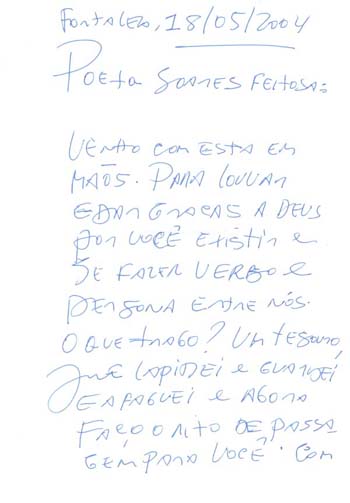 Fortaleza, 18/05/2004
Poeta Soares Feitosa:
Venho com esta em
mãos. Para louvar
e dar graças a Deus
por você existir e
se fazer verbo e
persona entre nós.
O que trago? Um tesouro,
que lapidei e guardei
e afaguei e agora
faço o rito de passa
gem para você. Com